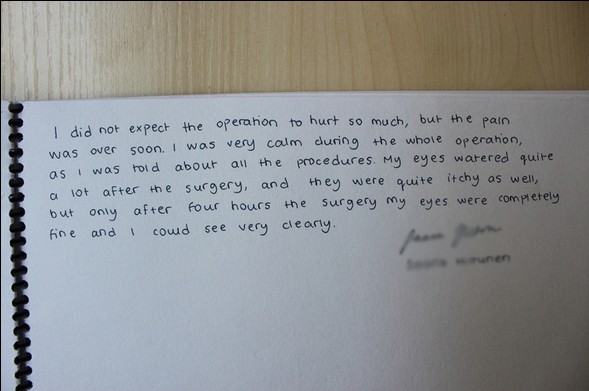 I did not expect the operation to hurt so much, but the pain
was over soon. I was very calm during the whole operation,
as I was told about all the procedures. My eyes watered quite
a lot after the surgery, and they were quite itchy as well,
but only after four hours the surgery my eyes were completely
fine and I could see very clearly.